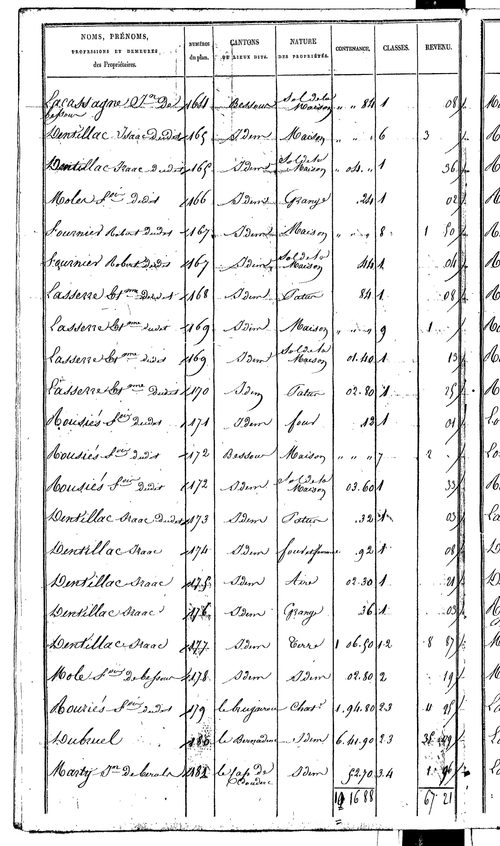 NOMS, PRÉNOMS, PROFESSIONS ET DEMEURES des Propriétaires. NUMÉROS du plan. CANTONS OU LIEUX DITS. NATURE DES PROPRIÉTÉS. CONTENANCE. CLASSES. REVENU.
Lacassagne Jn De bessour 164 Bessour Sol de la Maison " " 84 1 08
Dentillac Isaac dudit 165 Idem Maison " " " 6 3
Dentillac Isaac dudit 165 Idem Sol de la Maison " 04 " 1 36
Moles dudit 166 Idem Grange .24 1 02
Fournier Robert dudit 167 Idem Maison " " " 8 1 50
Fournier Robert dudit 167 Idem Sol de la Maison 44 1 04
Lasserre Etme dudit 168 Idem Patus 84 1 08
Lasserre Etme dudit 169 Idem Maison " " " 9 1
Lasserre Etme dudit 169 Idem Sol de la Maison 01.40 1 13
Lasserre Etme dudit 170 Idem Patus 02.80 1 25
Rousiés dudit 171 Idem four .12 1 01
Rousiés dudit 172 Bessour Maison " " " 7 2
Rousiés dudit 172 Idem Sol de la Maison 03.60 1 33
Dentillac Isaac dudit 173 Idem Patus .32 1 03
Dentillac Isaac 174 Idem .92 1 08
Dentillac Isaac 175 Idem Aire 02.30 1 21
Dentillac Isaac 176 Idem Grange 36 1 03
Dentillac Isaac 177 Idem Terre 1 06.50 1 2 8 87
Mole de bessour 178 Idem Idem 02.80 2 19
Rouriés dudit 179 le Chat. 1.94.80 2 3 4 25
Dubruel 180 le Bernadou Idem 6.41.90 2 3
Marty Jn de 181 le Cap de Idem 52.70 3.4 1 96
10 16 88 67 21